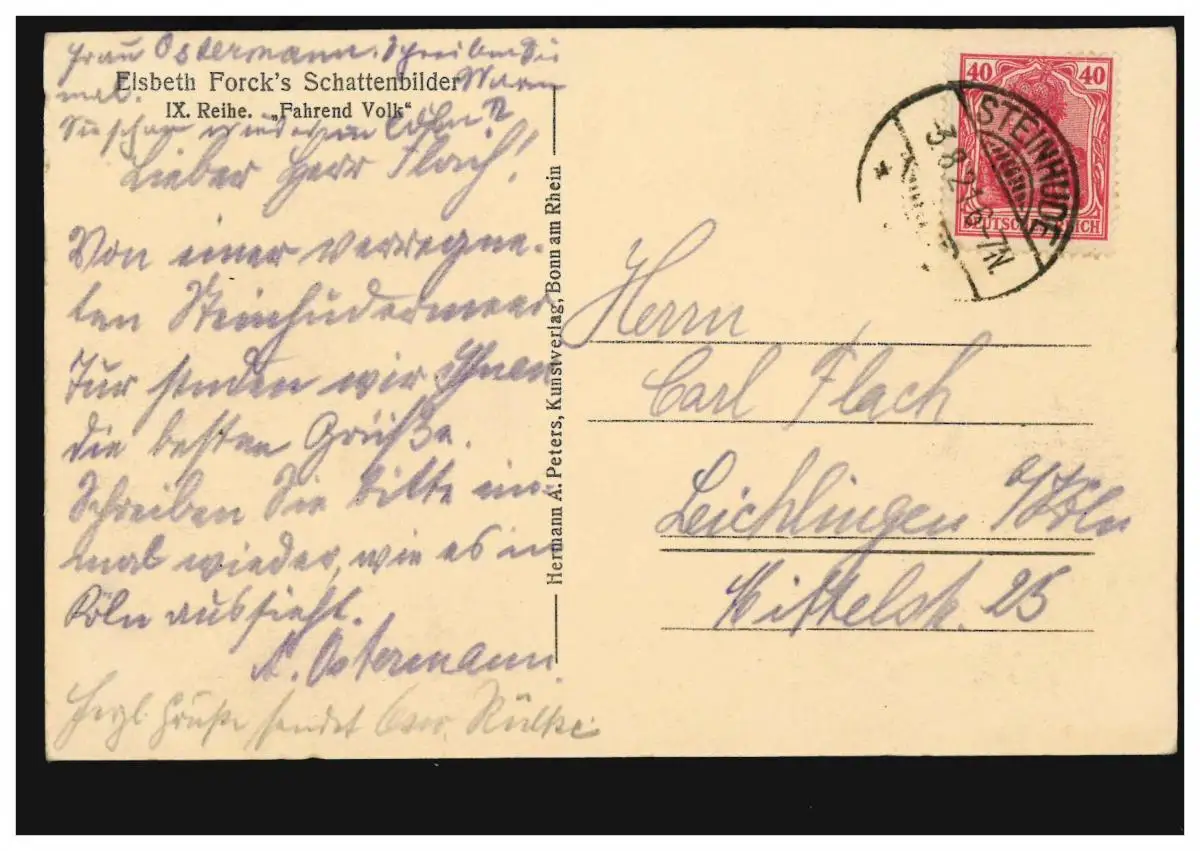 Frau Ostermann. Schreiben Sie
mal. Wann
Sie schon wieder in Cöln?
Elsbeth Forck's Schattenbilder
IX. Reihe. „Fahrend Volk“
Lieber Herr Flach!
Von einer verregne-
ten Steinhudermeer
Tur senden wir Ihnen
die besten Grüße.
Schreiben Sie bitte ein-
mal wieder, wie es in
Köln aussieht.
A. Ostermann.
Herzl. Grüße sendet
Hermann A. Peters, Kunstverlag, Bonn am Rhein
40 40
DEUTSCHES REICH
STEINHUDE
3.8.21 6-7N.
Herrn
Carl Flach
Leichlingen b/Köln
Mittelstr. 25